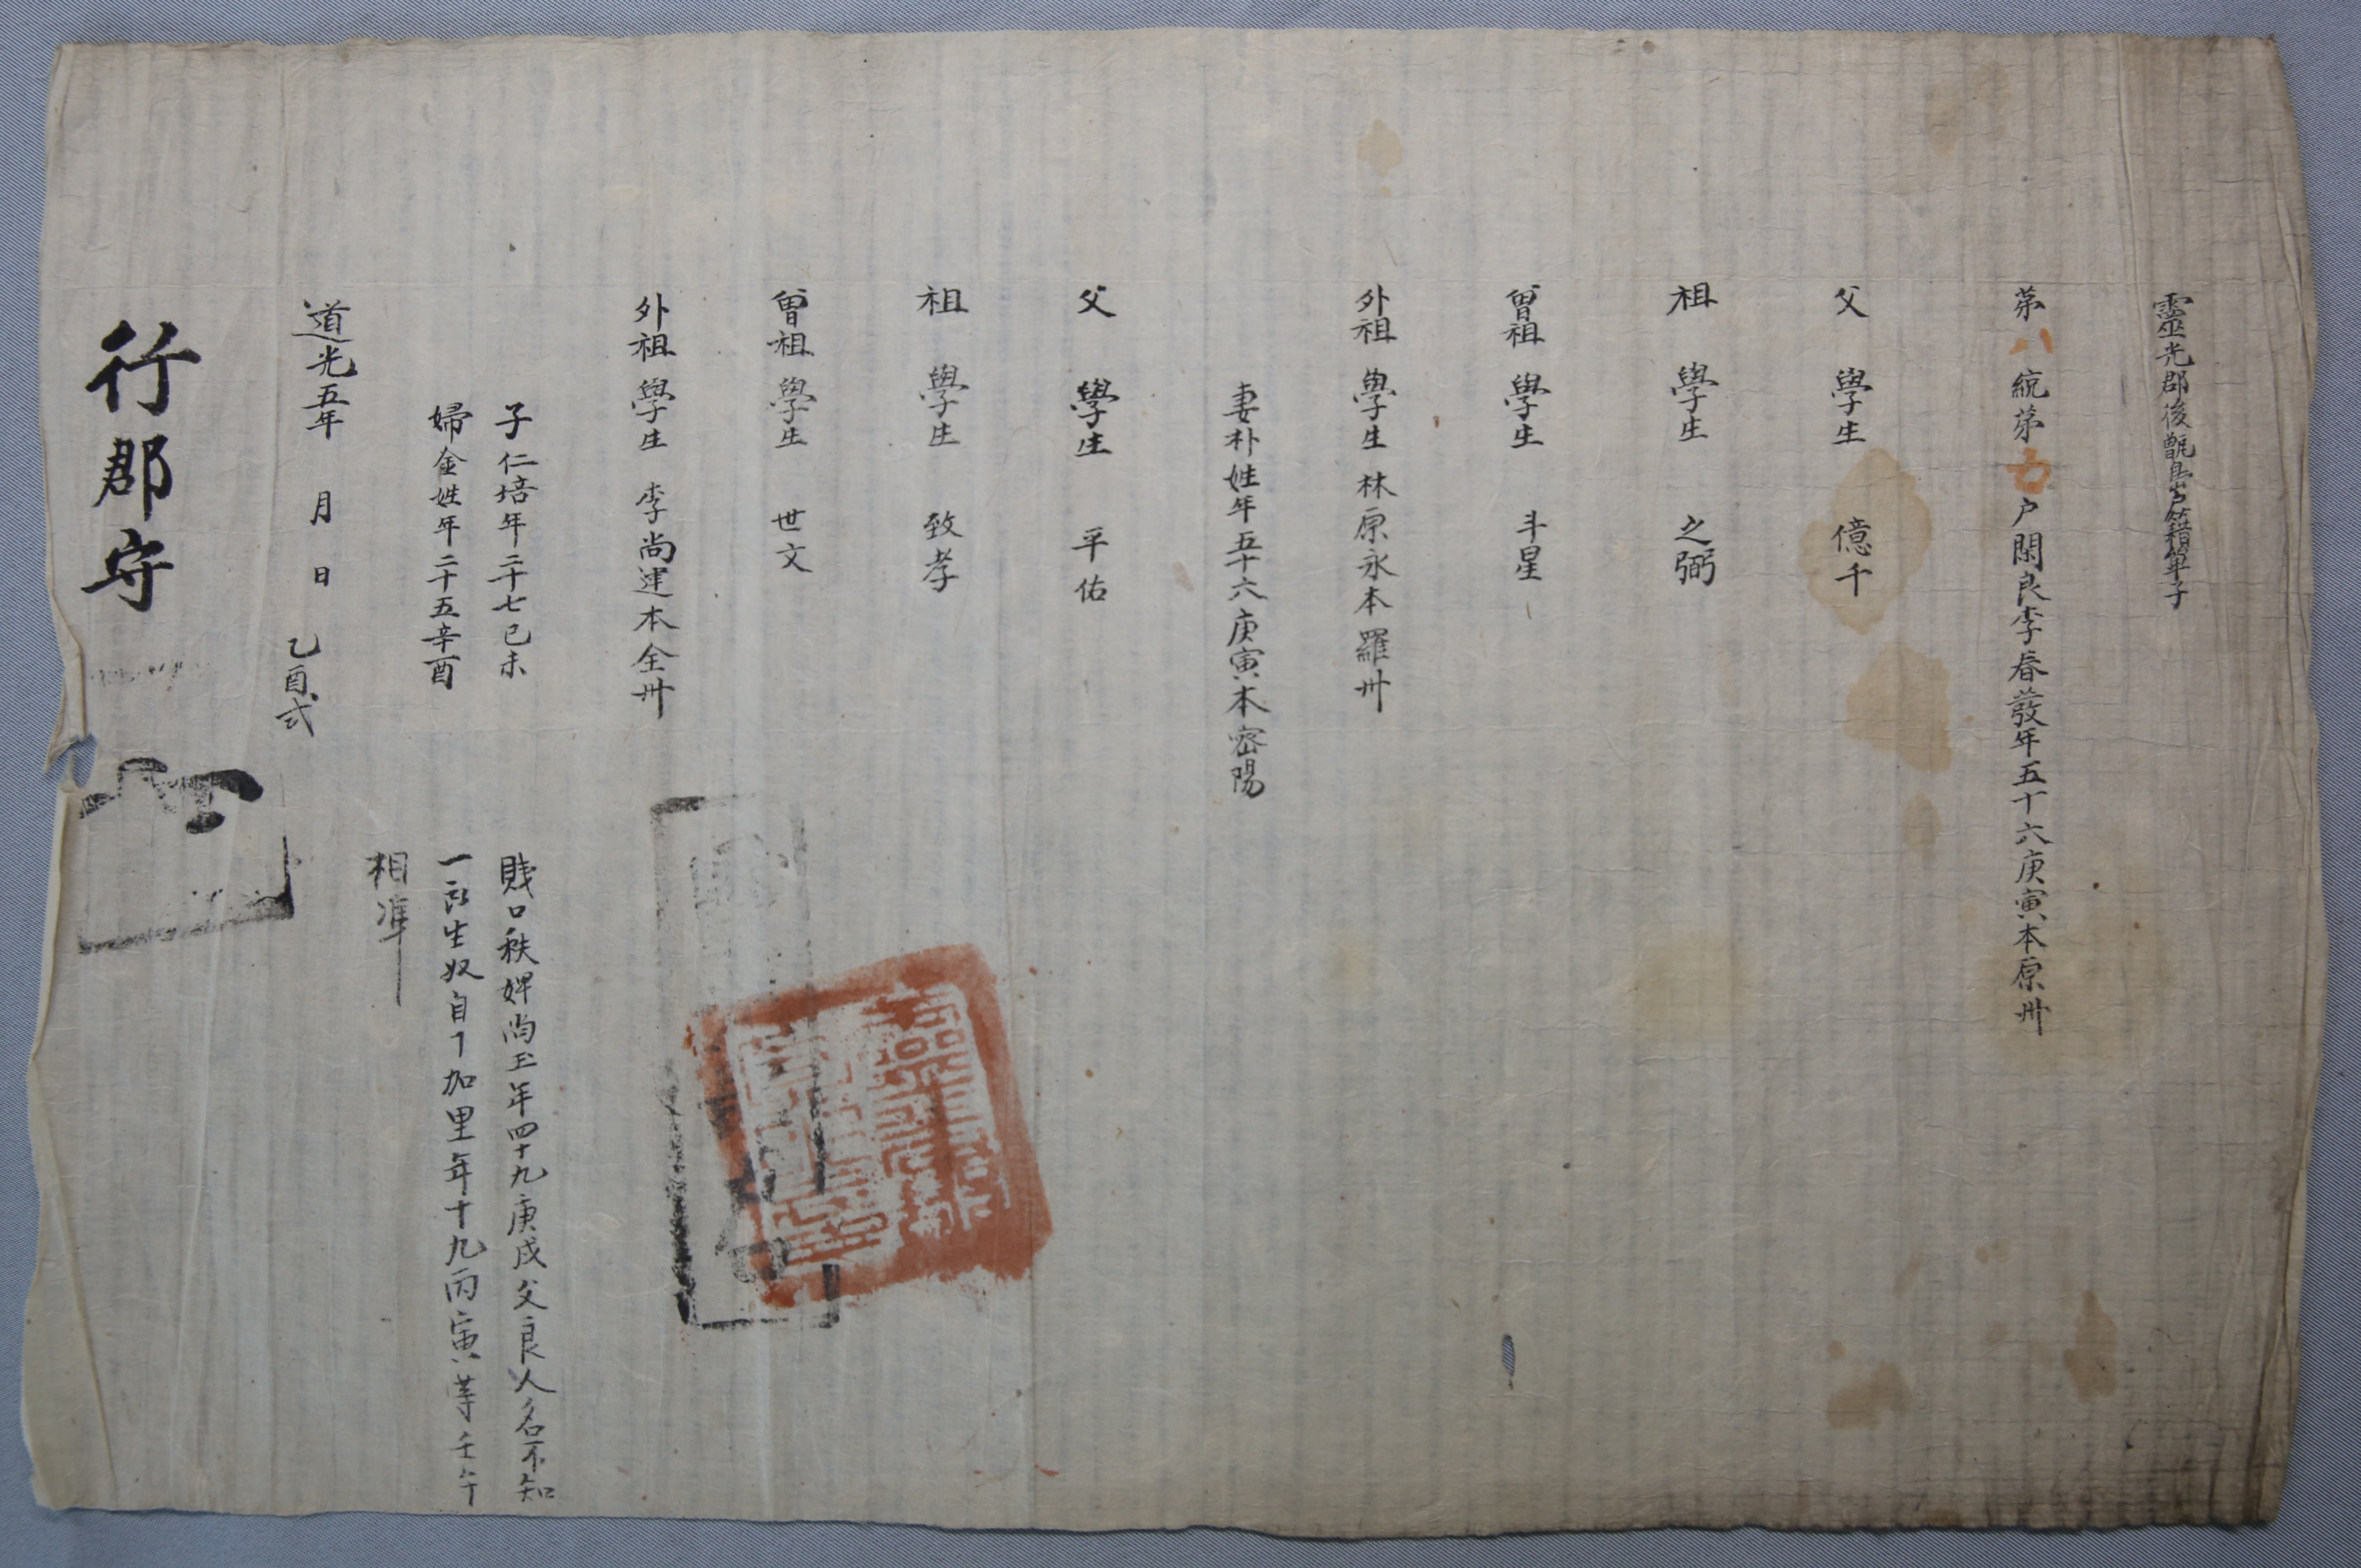 靈光郡後甑島戶籍單子
第八統第五户閑良李春發年五十六庚寅本原州
父 學生 億千
祖 學生 之弼
曾祖 學生 斗星
外祖 學生 林原永本羅州
妻朴姓年五十六庚寅本密陽
父 學生 平佑
祖 學生 致孝
曾祖 學生 世文
外祖 學生 李尚建本全州
子仁培年二十七己未
婦金姓年二十五辛酉
賎口秩婢尚玉年四十九庚戌父良人名不知
一所生奴自丁加里年十九丙寅等壬午
相準
道光五年 月 日 乙酉式
行郡守